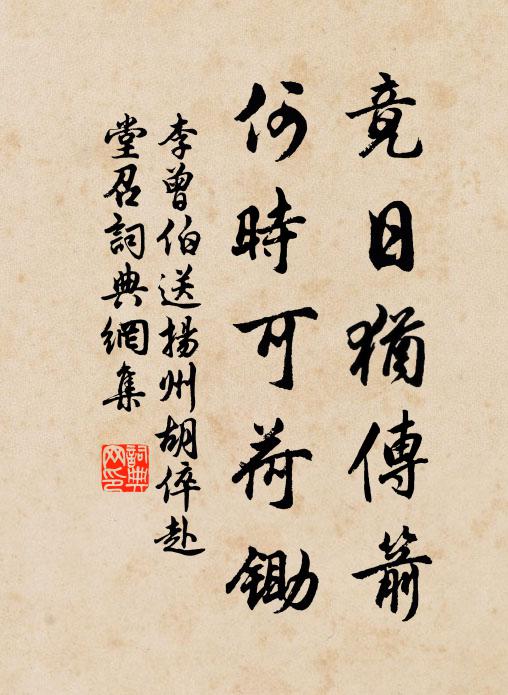 竟日猶傳箭
何時可荷鋤
李曾伯送揚州胡倅赴
堂召詞典網集
詞典网印